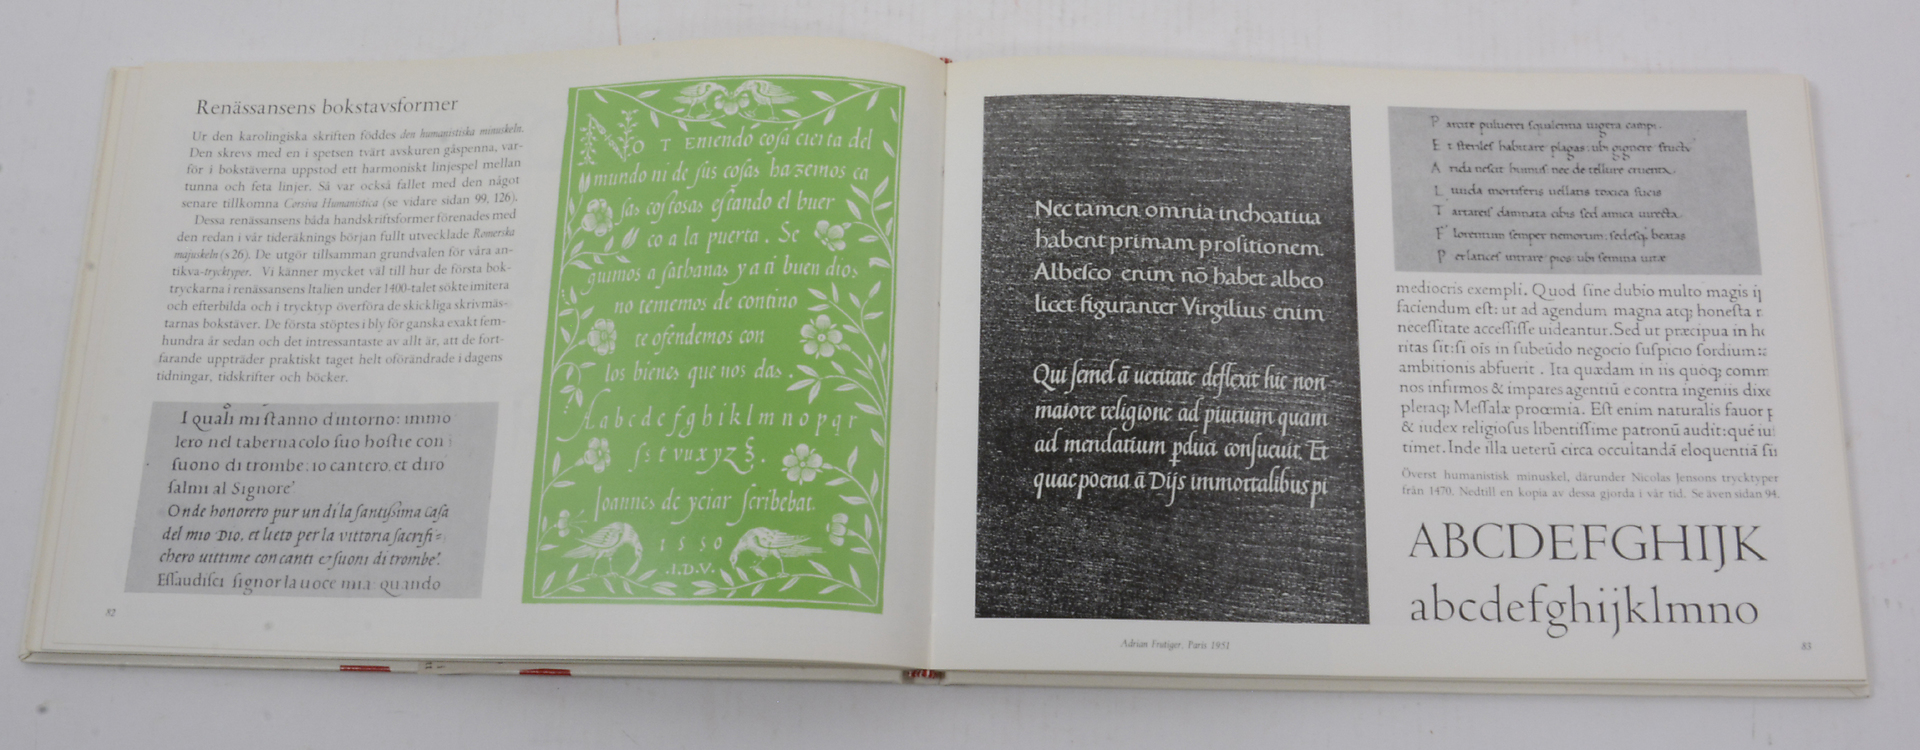 Renässansens bokstavsformer
Ur den karolingiska skriften föddes den humanistiska minuskeln.
Den skrevs med en i spetsen tvärt avskuren gåspenna, var-
för i bokstäverna uppstod ett harmoniskt linjespel mellan
tunna och feta linjer. Så var också fallet med den något
senare tillkomna Corsiva Humanistica (se vidare sidan 99, 126).
Dessa renässansens båda handskriftsformer förenades med
den redan i vår tideräknings början fullt utvecklade Romerska
majuskeln (s 26). De utgör tillsamman grundvalen för våra an-
tikva-trycktyper. Vi känner mycket väl till hur de första bok-
tryckarna i renässansens Italien under 1400-talet sökte imitera
och efterbilda och i trycktyp överföra de skickliga skrivmäs-
tarnas bokstäver. De första stöptes i bly för ganska exakt fem-
hundra år sedan och det intressantaste av allt är, att de fort-
farande uppträder praktiskt taget helt oförändrade i dagens
tidningar, tidskrifter och böcker.
I quali mi stanno dintorno: immo
lero nel tabernacolo suo hostie con
suono di trombe: io cantero, et diro
salmi al Signore
Onde honorero pur un di la santissima casa
del mio Dio, et lieto per la vittoria sacrifi=
chero vittime con canti & suoni di trombe.
Essaudisci signor la uoce mia quando
82
NO Temiendo cosa cierta del
mundo ni de sus cosas hazemos ca
sas costosas estando el buer
co a la puerta. Se
guimos a sathanas y a ti buen dios
no tememos de contino
te ofendemos con
los bienes que nos das.
A a b c d e f g h i k l m n o p q r
ſ s t v u x y z
Ioannes de yciar scribebat.
1550
.I.D.V.
Nec tamen omnia inchoatiua
habent primam prositionem.
Albesco enim nō habet albeo
licet figuranter Virgilius enim
Qui semel ā ueritate deflexit hic non
maiore religione ad piurium quam
ad mendatium pduci consueuit. Et
quae poena ā Dijs immortalibus pi
Adrian Frutiger, Paris 1951
Parcite pulueret squalentia iugera campi.
Et steriles habitare plagas: ubi gignere
Arida nescit humus nec de tellure cruenta.
Liuida mortiferis uellatis toxica sucis
Tartareis damnata cibis sed amica uirecta.
Florentum semper nemorum: sedesq; beatas
Per lances intrare pios: ubi semina uitæ
mediocris exempli. Quod sine dubio multo magis ij
faciendum est: ut ad agendum magna atq; honesta r
necessitate accessisse uideantur. Sed ut præcipua in ho
ritas sit: si ois in subeūdo negocio suspicio sordium
ambitionis abfuerit. Ita quædam in iis quoq; comm
nos infirmos & impares agentiū e contra ingeniis dixe
pleraq; Messalæ prooemia. Est enim naturalis fauor p
& iudex religiosus libentissime patronū audit: qué iu
timet. Inde illa ueterū circa occultandā eloquentiā si
Överst humanistisk minuskel, därunder Nicolas Jensons trycktyper
från 1470. Nedtill en kopia av dessa gjorda i vår tid. Se även sidan 94.
ABCDEFGHIJK
abcdefghijklmno
83